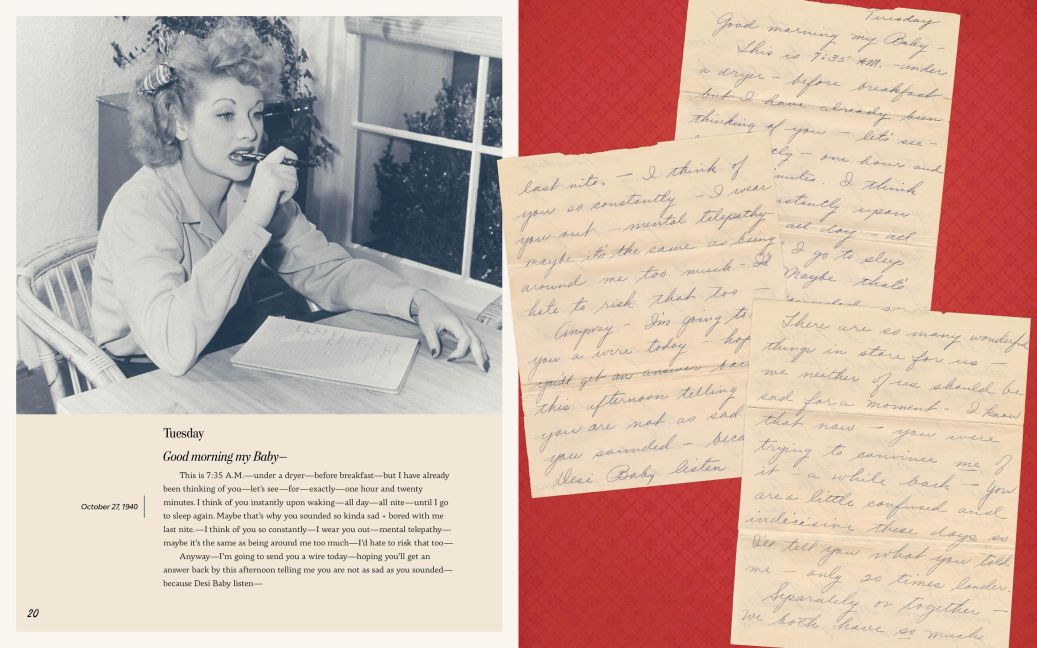 Tuesday
Good morning my Baby—
This is 7:35 A.M.—under a dryer—before breakfast—but I have already
been thinking of you—let's see—for—exactly—one hour and twenty
minutes. I think of you instantly upon waking—all day—all nite—until I go
to sleep again. Maybe that's why you sounded so kinda sad + bored with me
last nite.—I think of you so constantly—I wear you out—mental telepathy—
maybe it's the same as being around me too much—I'd hate to risk that too—
Anyway—I'm going to send you a wire today—hoping you'll get an
answer back by this afternoon telling me you are not as sad as you sounded—
because Desi Baby listen—
October 27, 1940
20
Tuesday
Good morning my Baby —
This is 7:35 A.M. — under
a dryer — before breakfast —
but I have already been
thinking of you — let's see —
one hour and
I think
upon
all day - all
I go to sleep
Maybe that's
last nite. — I think of
you so constantly — I wear
you out — mental telepathy
maybe it's the same as being
around me too much — I'd
hate to risk that too —
Anyway — I'm going to
you a wire today — hop
you'll get an answer bac
this afternoon telling
you are not as sad
you sounded — beca
Desi Baby listen
There are so many wonderful
things in store for us —
we neither of us should be
sad for a moment - I know
that now — you were
trying to convince me of
it — a while back — You
are a little confused and
indecisive these days so
I'll tell you what you told
me — only 20 times louder.
Separately or together —
we both have so much